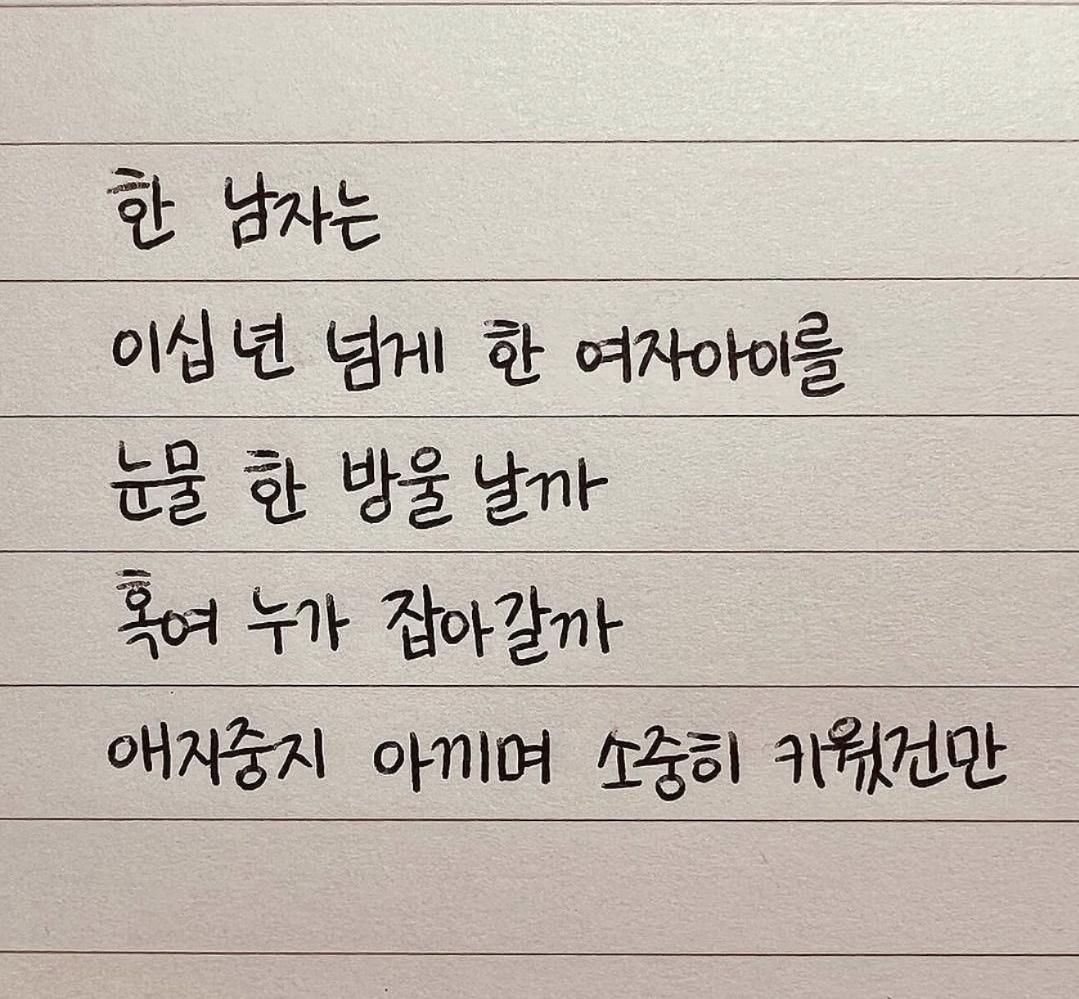 한 남자는
이십 년 넘게 한 여자아이를
눈물 한 방울 날까
혹여 누가 잡아갈까
애지중지 아끼며 소중히 키웠건만